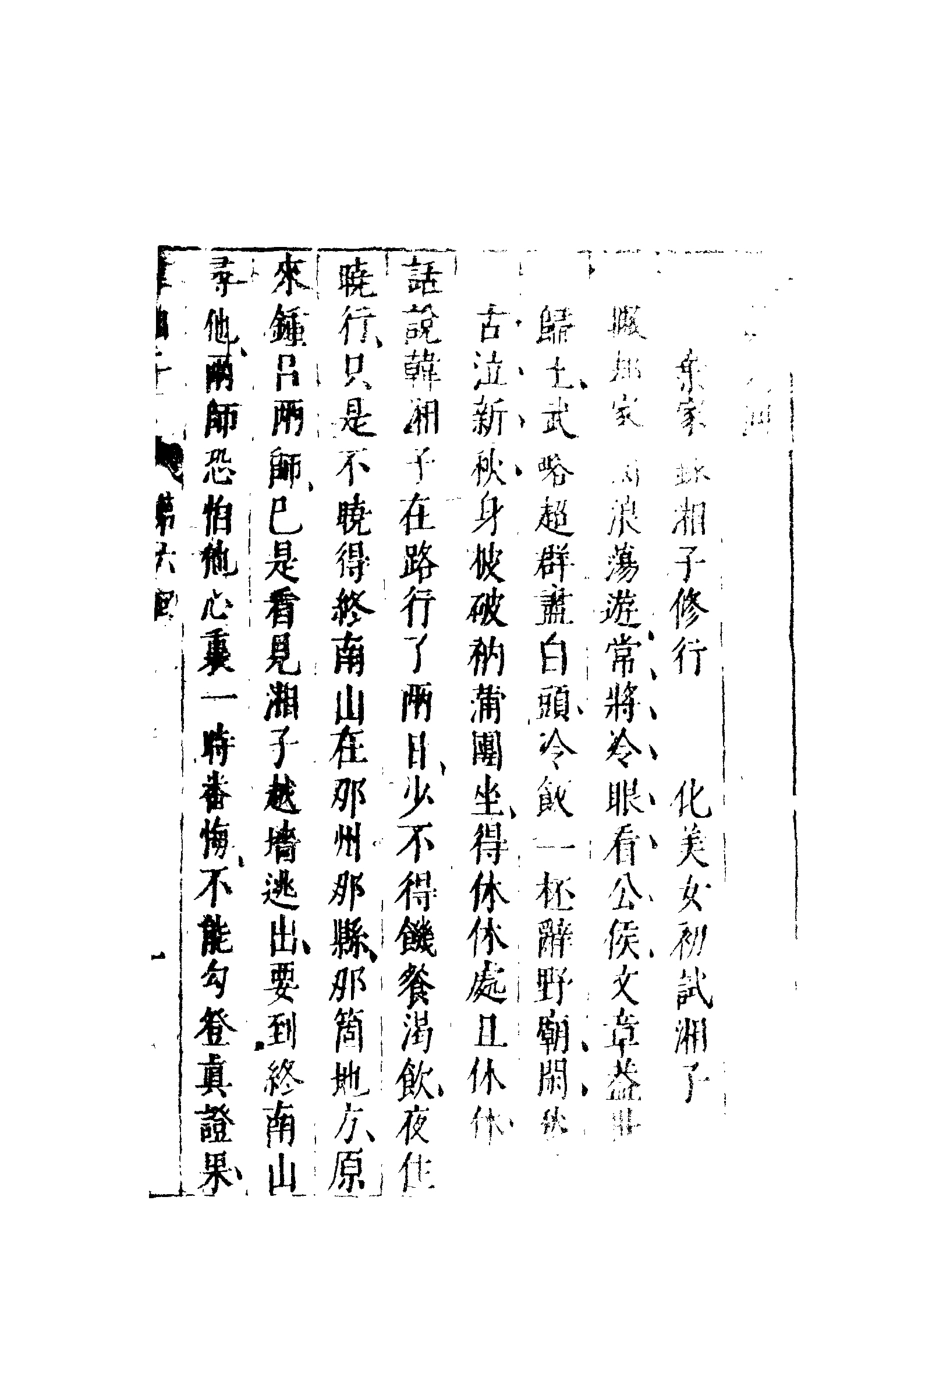 棄家 湘子修行　化美女初試湘子
家 浪蕩遊常將冷眼看公侯文章蓋世
歸土武略超群盡白頭冷飯一杯辭野廟閑愁
古泣新秋身披破衲蒲團坐得休休處且休休
話說韓湘子在路行了兩日少不得饑餐渴飲夜住
曉行只是不曉得終南山在那州那縣那箇地方原
來鍾呂兩師已是看見湘子越墻逃出要到終南山
尋他兩師恐怕他心裏一時番悔不能勾登真證果
第六回
一